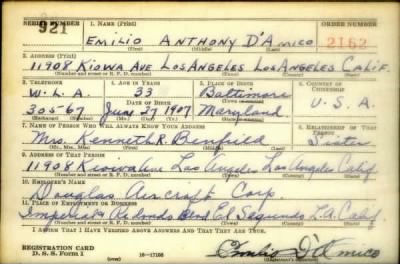 SERIAL NUMBER 1. NAME (Print) ORDER NUMBER
921 EMILIO ANTHONY D'AMICO 2162
(First) (Middle) (Last)
2. ADDRESS (Print)
11908 KIOWA AVE LOS ANGELES LOS ANGELES CALIF.
(Number and street or R. F. D. number) (Town) (County) (State)
3. TELEPHONE 4. AGE IN YEARS 5. PLACE OF BIRTH 6. COUNTRY OF CITIZENSHIP
W. L. A. 33 Baltimore
DATE OF BIRTH (Town or county) U. S. A.
305-67 27 1907 Maryland
(Exchange) (Number) (Mo.) (Day) (Yr.) (State or country)
7. NAME OF PERSON WHO WILL ALWAYS KNOW YOUR ADDRESS 8. RELATIONSHIP OF THAT PERSON
Mrs. Kenneth R. Sister
(Mr., Mrs., Miss) (First) (Middle) (Last)
9. ADDRESS OF THAT PERSON
11908 Kiowa Ave Los Angeles Los Angeles Calif
(Number and street or R. F. D. number) (Town) (County) (State)
10. EMPLOYER'S NAME
Douglas Aircraft Corp
11. PLACE OF EMPLOYMENT OR BUSINESS
Imperial & Redondo Blvd El Segundo L.A. Calif.
(Number and street or R. F. D. number) (Town) (County) (State)
I AFFIRM THAT I HAVE VERIFIED ABOVE ANSWERS AND THAT THEY ARE TRUE.
REGISTRATION CARD
D. S. S. Form 1 16—17105 Emilio D'Amico
(Registrant's signature)